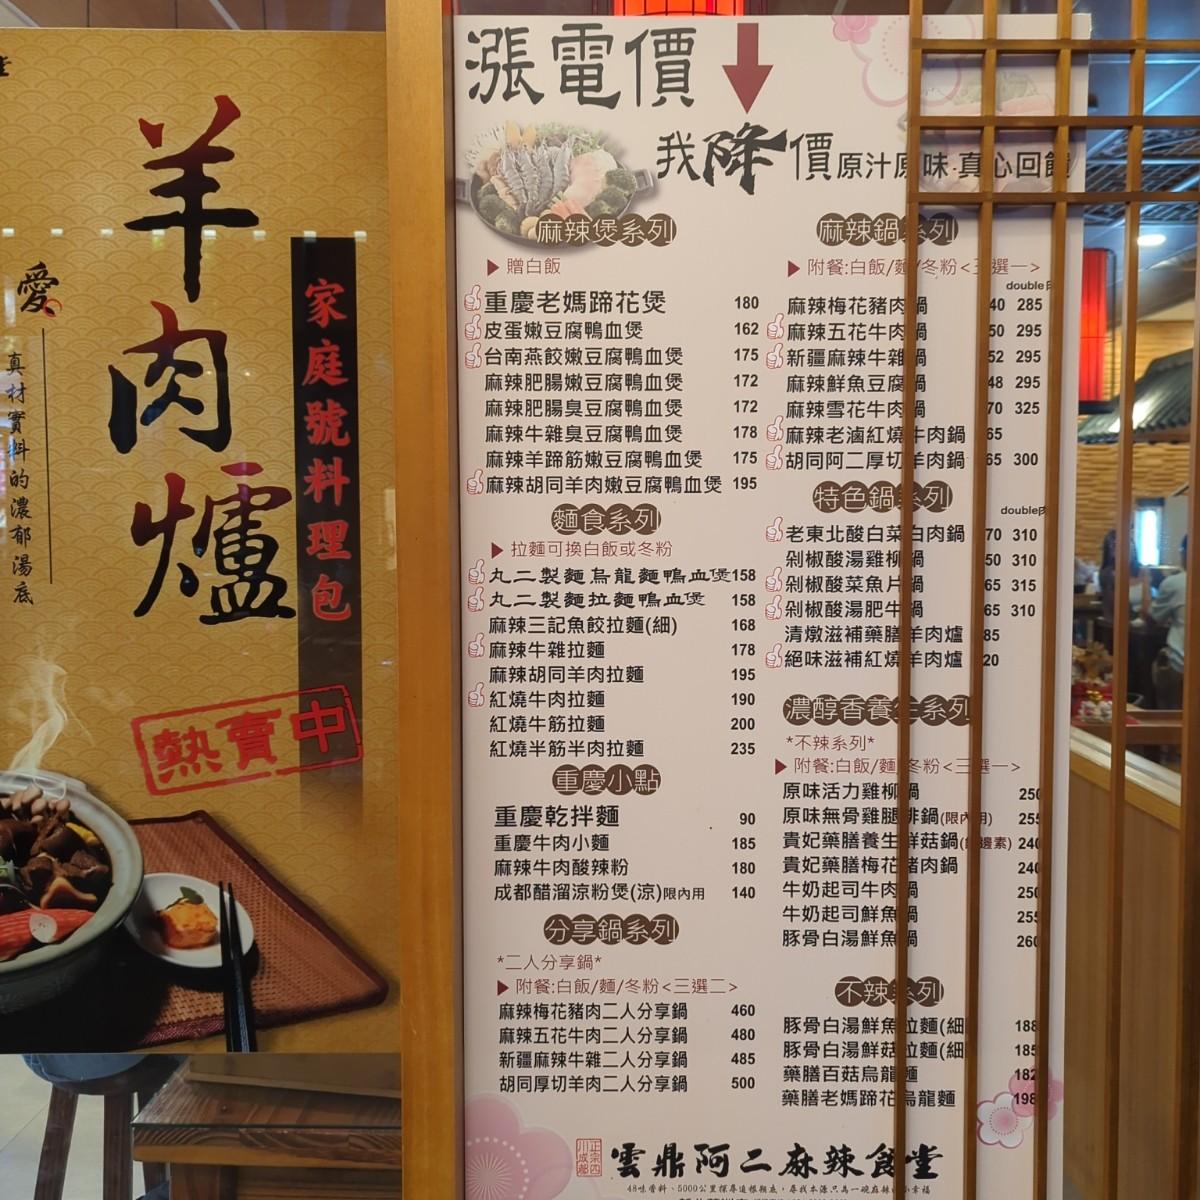 羊肉爐
愛
真材實料的濃郁湯底
家庭號料理包
熱賣中
漲電價
我降價原汁原味·真心回饋
麻辣煲系列
贈白飯
重慶老媽蹄花煲 180
皮蛋嫩豆腐鴨血煲 162
台南燕餃嫩豆腐鴨血煲 175
麻辣肥腸嫩豆腐鴨血煲 172
麻辣肥腸臭豆腐鴨血煲 172
麻辣牛雜臭豆腐鴨血煲 178
麻辣羊蹄筋嫩豆腐鴨血煲 175
麻辣胡同羊肉嫩豆腐鴨血煲 195
麵食系列
拉麵可換白飯或冬粉
丸二製麵烏龍麵鴨血煲158
丸二製麵拉麵鴨血煲 158
麻辣三記魚餃拉麵(細) 168
麻辣牛雜拉麵 178
麻辣胡同羊肉拉麵 195
紅燒牛肉拉麵 190
紅燒牛筋拉麵 200
紅燒半筋半肉拉麵 235
重慶小點
重慶乾拌麵 90
重慶牛肉小麵 185
麻辣牛肉酸辣粉 180
成都醋溜涼粉煲(涼)限內用 140
分享鍋系列
*二人分享鍋*
附餐:白飯/麵/冬粉<三選二>
麻辣梅花豬肉二人分享鍋 460
麻辣五花牛肉二人分享鍋 480
新疆麻辣牛雜二人分享鍋 485
胡同厚切羊肉二人分享鍋 500
麻辣鍋系列
附餐:白飯/麵/冬粉<三選一>
double肉
麻辣梅花豬肉鍋 40 285
麻辣五花牛肉鍋 50 295
新疆麻辣牛雜鍋 52 295
麻辣鮮魚豆腐鍋 48 295
麻辣雪花牛肉鍋 70 325
麻辣老滷紅燒牛肉鍋 65
胡同阿二厚切羊肉鍋 65 300
特色鍋系列
double肉
老東北酸白菜白肉鍋 70 310
剁椒酸湯雞柳鍋 50 310
剁椒酸菜魚片鍋 65 315
剁椒酸湯肥牛鍋 65 310
清燉滋補藥膳羊肉爐 85
絕味滋補紅燒羊肉爐 20
濃醇香養生系列
*不辣系列*
附餐:白飯/麵/冬粉<三選一>
原味活力雞柳鍋 250
原味無骨雞腿排鍋(限內用) 255
貴妃藥膳養生鮮菇鍋(鍋邊素) 240
貴妃藥膳梅花豬肉鍋 240
牛奶起司牛肉鍋 250
牛奶起司鮮魚鍋 255
豚骨白湯鮮魚鍋 260
不辣系列
豚骨白湯鮮魚拉麵(細) 188
豚骨白湯鮮菇拉麵(細) 185
藥膳百菇烏龍麵 182
藥膳老媽蹄花烏龍麵 198
正宗四川成都
雲鼎阿二麻辣食堂